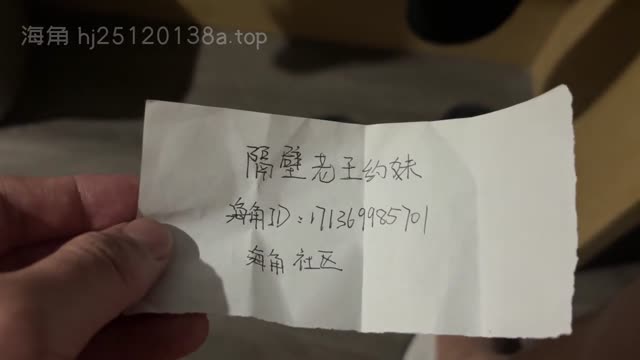 海角 hj25120138a.top
隔壁老王约妹
海角ID：171369985701
海角社区